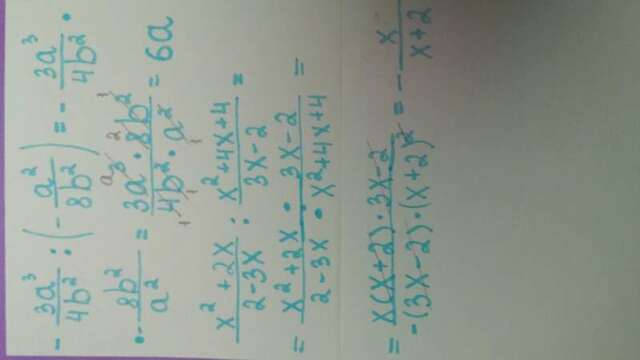 - 3a³/4b² : (- a²/8b²) = - 3a³/4b² ·
· - 8b²/a² = 3a³ · 8b²/4b² · a² = 6a
x² + 2x/2 - 3x : x² + 4x + 4/3x - 2 =
= x² + 2x · 3x - 2/2 - 3x · x² + 4x + 4 =
= x(x + 2) · 3x - 2/-(3x - 2) · (x + 2)² = - x/x + 2